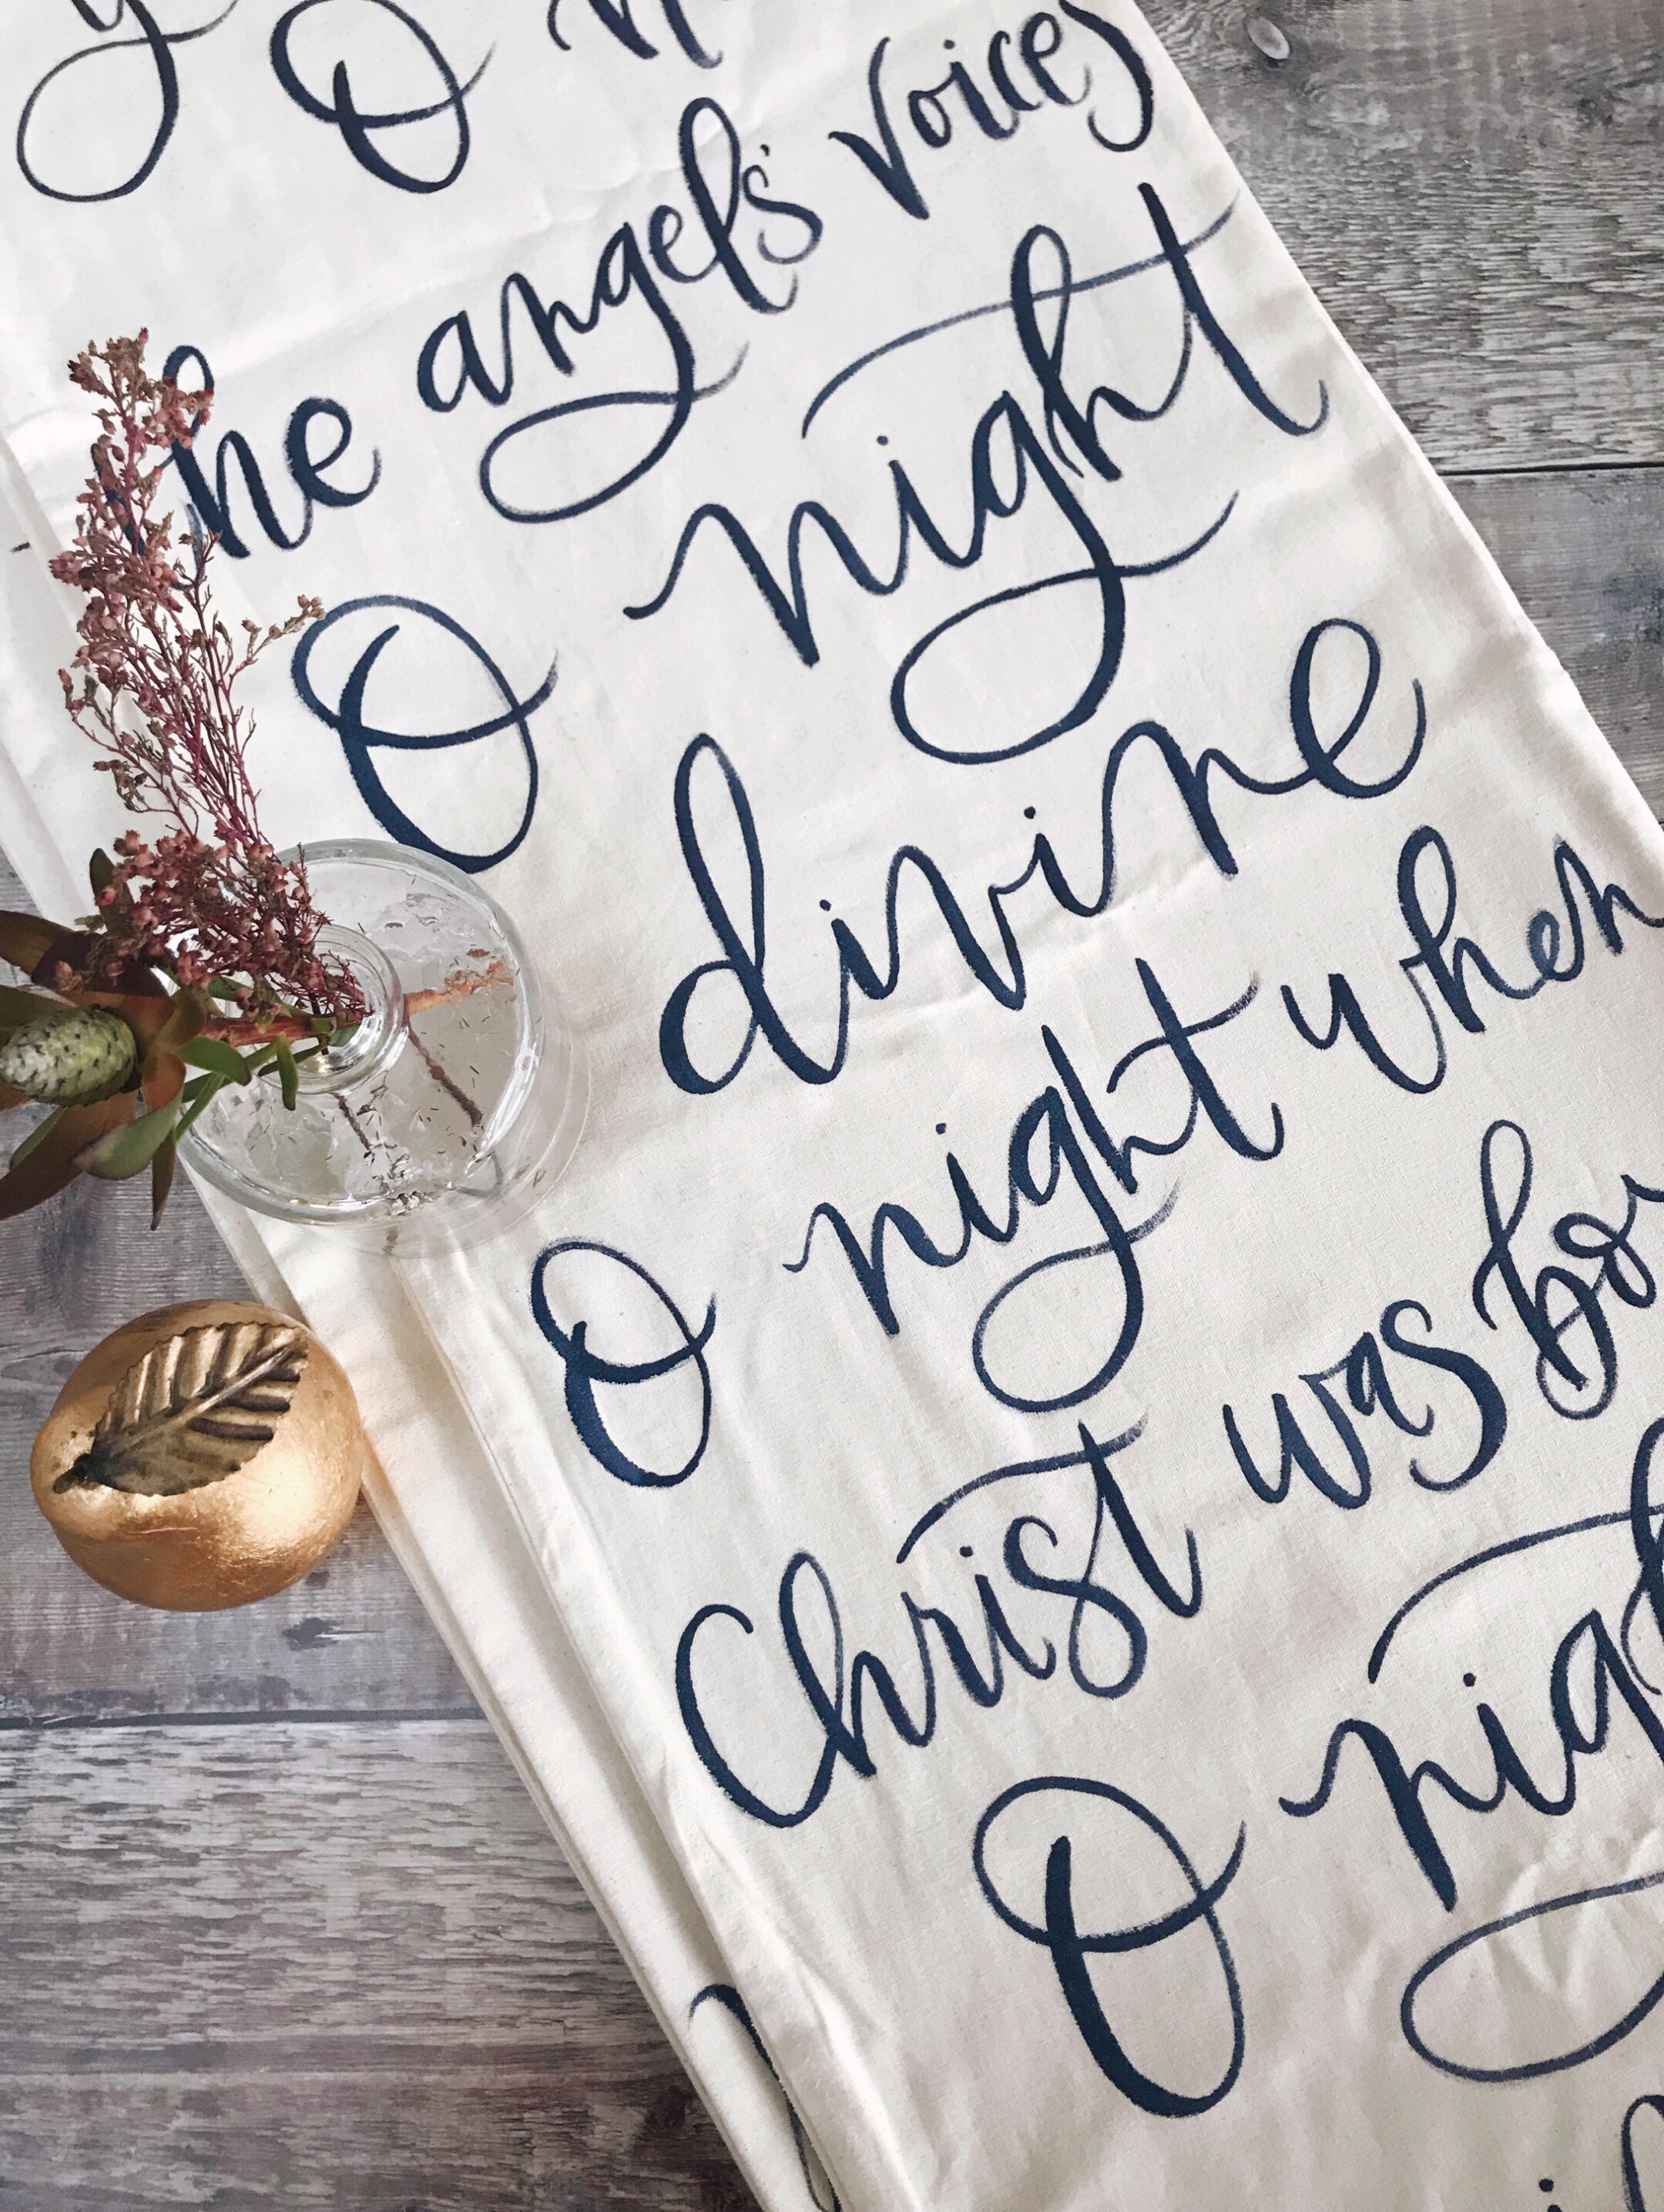 O
the angels' voices
O night
divine
O night when
Christ was
O